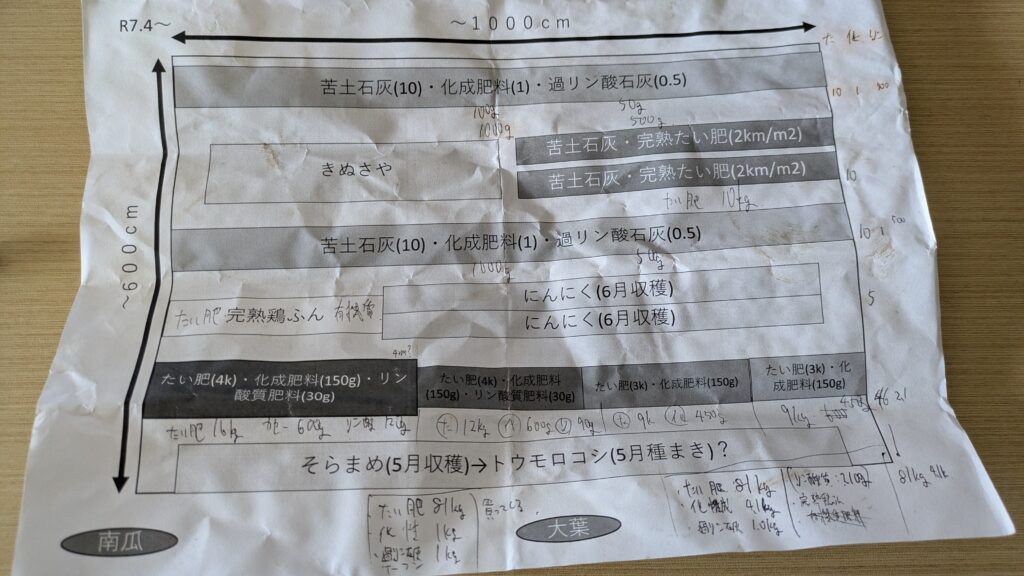 R7.4～
～1000cm
た 化 リン
苦土石灰(10)・化成肥料(1)・過リン酸石灰(0.5)
10 1 500
100g
1000g
50g
500g
苦土石灰・完熟たい肥(2km/m2)
きぬさや
苦土石灰・完熟たい肥(2km/m2)
10
たい肥 10kg
～600cm
苦土石灰(10)・化成肥料(1)・過リン酸石灰(0.5)
10 1 500
1000g
50g
にんにく(6月収穫)
5
たい肥 完熟鶏ふん 有機質
にんにく(6月収穫)
たい肥(4k)・化成肥料(150g)・リン酸質肥料(30g)
たい肥(4k)・化成肥料(150g)・リン酸質肥料(30g)
たい肥(3k)・化成肥料(150g)
たい肥(3k)・化成肥料(150g)
46 2.1
たい肥 16kg 600g リン酸 120g
た 12kg 化 600g リ 90g
た 9k 化 450g
9kg 450g
そらまめ(5月収穫)→トウモロコシ(5月種まき)？
たい肥 81kg
化性 1kg
1kg
買ってくる
たい肥 81kg
化成 4.1kg
過リン酸 1.0kg
81kg 4.1k
南瓜
大葉